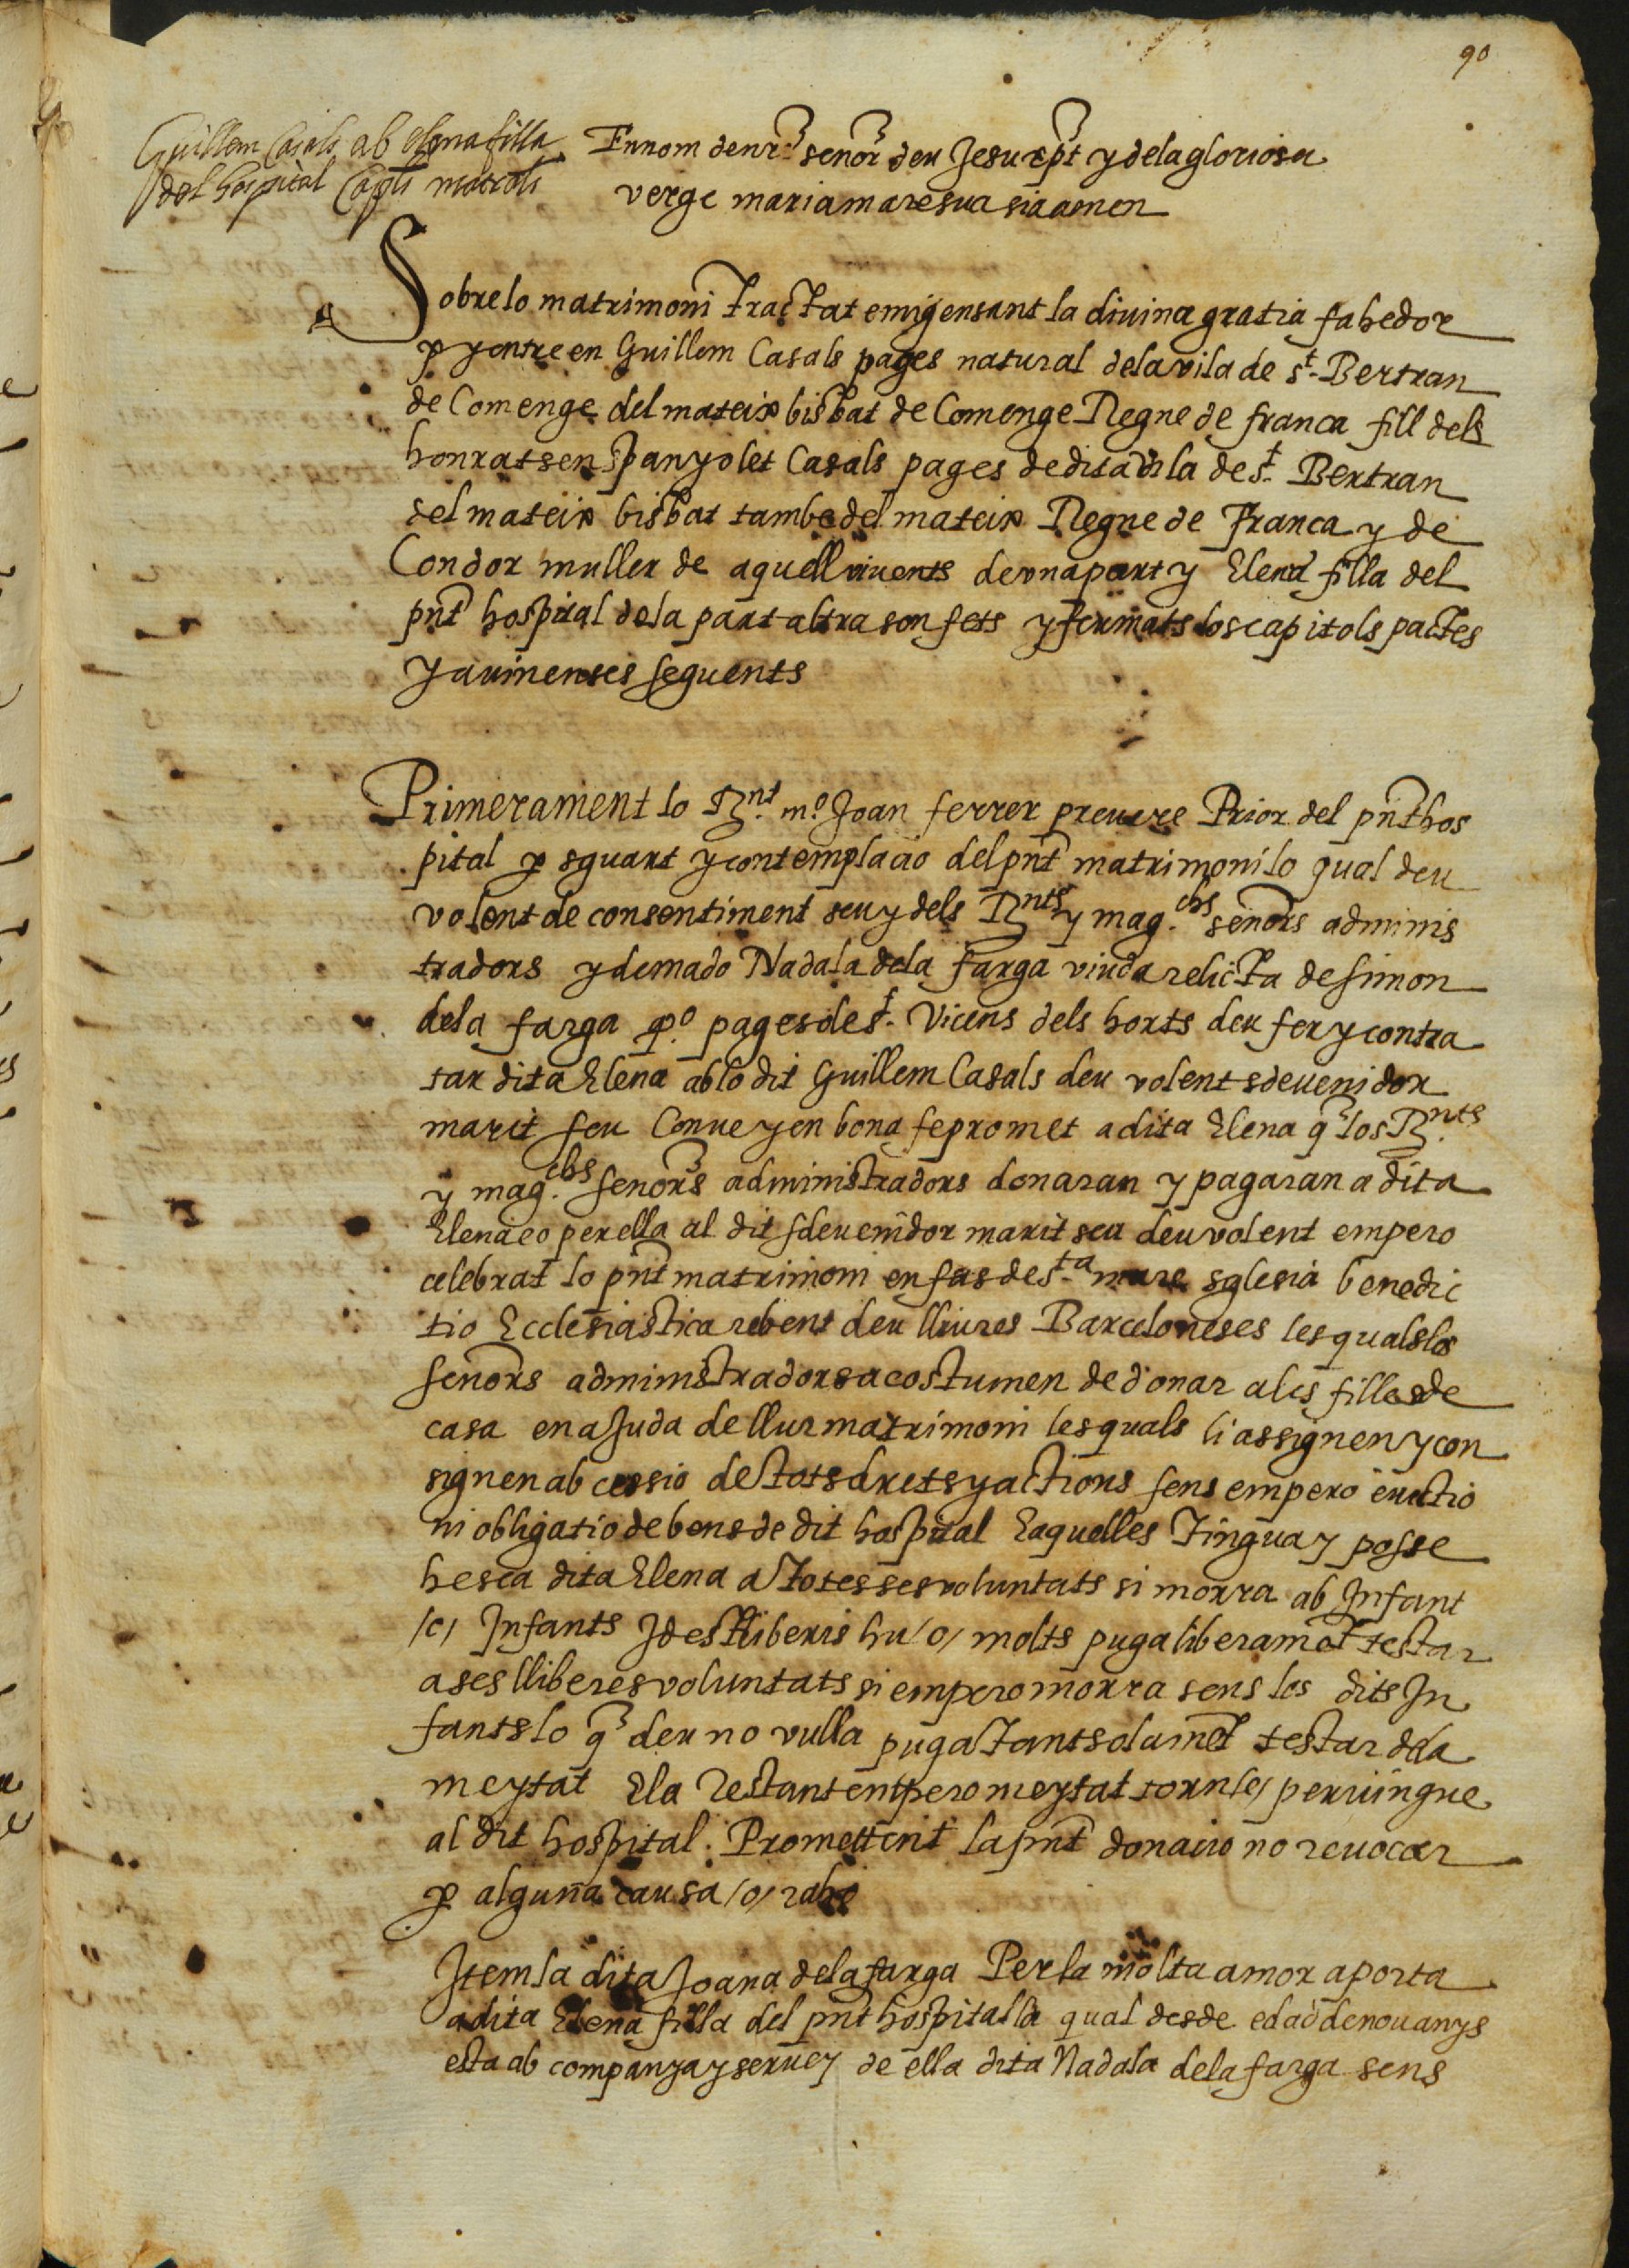 90
Guillem Casals ab elena filla
del hospital Capls matrols
En nom de nre senor deu Jesu xpt y dela gloriosa
verge maria mare sua sia amen
Sobre lo matrimoni tractat e migensant la divina gratia fahedor
p y entre en Guillem Casals pages natural dela vila de st. Bertran
de Comenge del mateix bisbat de Comenge Regne de franca fill dels
honrats en Spanyolet Casals pages de dita vila de st. Bertran
del mateix bisbat tambe del mateix Regne de Franca y de
Condor muller de aquell vivents de vna part y Elena filla del
pnt hospital dela part altra son fets y fermats los capitols pactes
y avinenses seguents
Primerament lo Rnt. mo. Joan ferrer prevere Prior del pnt hos
pital p sguart y contemplacio del pnt matrimoni lo qual deu
volent de consentiment seu y dels Rnts y mag.chs senors adminis
tradors y de mado Nadala dela farga viuda relicta de simon
dela farga qo. pages de st. Vicens dels horts deu fer y contra
tar dita Elena ab lo dit Guillem Casals deu volent sdevenidor
marit seu Conve y en bona fe promet a dita Elena q los Rnts.
y mag.chs senors administradors donaran y pagaran a dita
Elena eo per ella al dit sdevenidor marit seu deu volent empero
celebrat lo pnt matrimoni en fas de sta. mare sglesia benedic
tio Ecclesiastica rebent deu lliures Barceloneses les quals los
senors administradors acostumen de donar a les filles de
casa en ajuda de llur matrimoni les quals li assignen y con
signen ab cessio de tots drets y actions sens empero evictio
ni obligatio de bens de dit hospital E aquelles tingua y posse
hesca dita Elena a totes ses voluntats si morra ab Infant
/o/ Infants Id est lliberis hu /o/ molts puga liberament testar
a ses lliberes voluntats si empero morra sens los dits In
fants lo q deu no vulla puga tant solament testar dela
meytat E la restant empero meytat torn /e/ pervingue
al dit hospital. Promettent la pnt donacio no revocar
p alguna causa /o/ raho
Item la dita Joana dela farga Per la molta amor aporta
a dita Elena filla del pnt hospital la qual desde edad de nou anys
esta ab companya y servey de ella dita Nadala dela farga sens